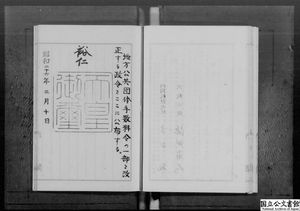 地方公共団体手数料令の一部を改
正する政令をここに公布する。
裕仁
天皇
御璽
昭和二十六年二月十日
国立公文書館
National Archives of Japan